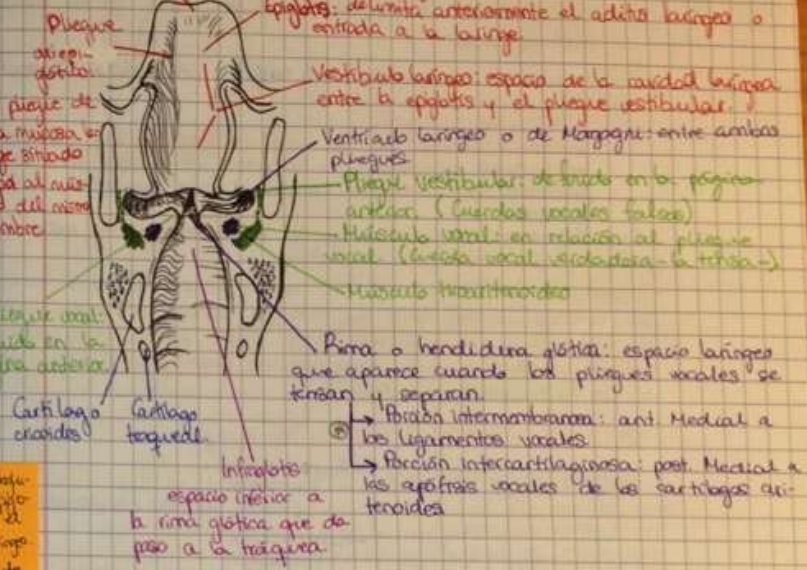 Epiglotis: delimita anteriormente el aditus laríngeo o
entrada a la laringe.
Pliegue
ariepi-
glótico:
pliegue de
mucosa
situado
del mismo
nombre
Vestíbulo laríngeo: espacio de la cavidad laríngea
entre la epiglotis y el pliegue vestibular.
Ventrículo laríngeo o de Morgagni: entre ambos
pliegues
Pliegue vestibular: definido en la página
anterior (Cuerdas vocales falsas)
Músculo vocal: en relación al pliegue
vocal (cuerda vocal verdadera - la tensa -)
Músculo tiroaritenoideo
pliegue vocal:
en la
anterior.
Rima o hendidura glótica: espacio laríngeo
que aparece cuando los pliegues vocales se
tensan y separan.
→ Porción intermembranosa: ant. Medial a
los ligamentos vocales
→ Porción intercartilaginosa: post. Medial a
las apófisis vocales de los cartílagos ari-
tenoides
Cartílago
cricoides
Cartílago
traqueal.
Infraglotis:
espacio inferior a
la rima glótica que da
paso a la tráquea.